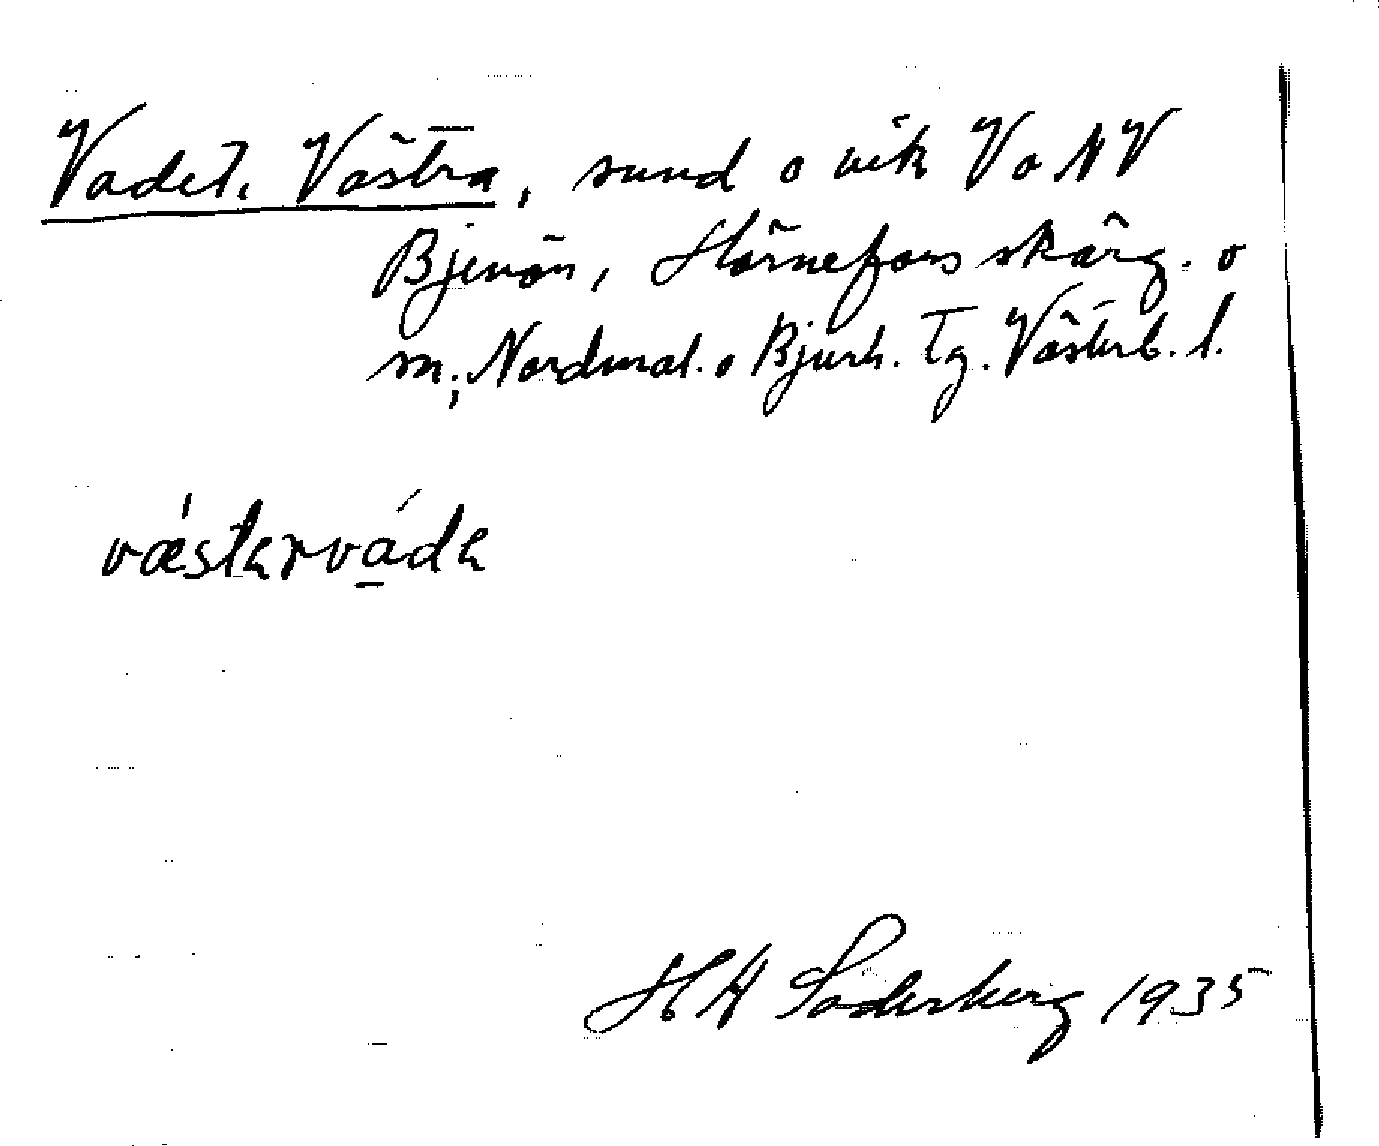 Vadet, Västra, sund o vik V o NV
Bjenön, Hörnefors skärg. o
sn; Nordmal. o Bjurh. Tg. Västerb. l.
vǽstərvádə
H A Söderberg 1935